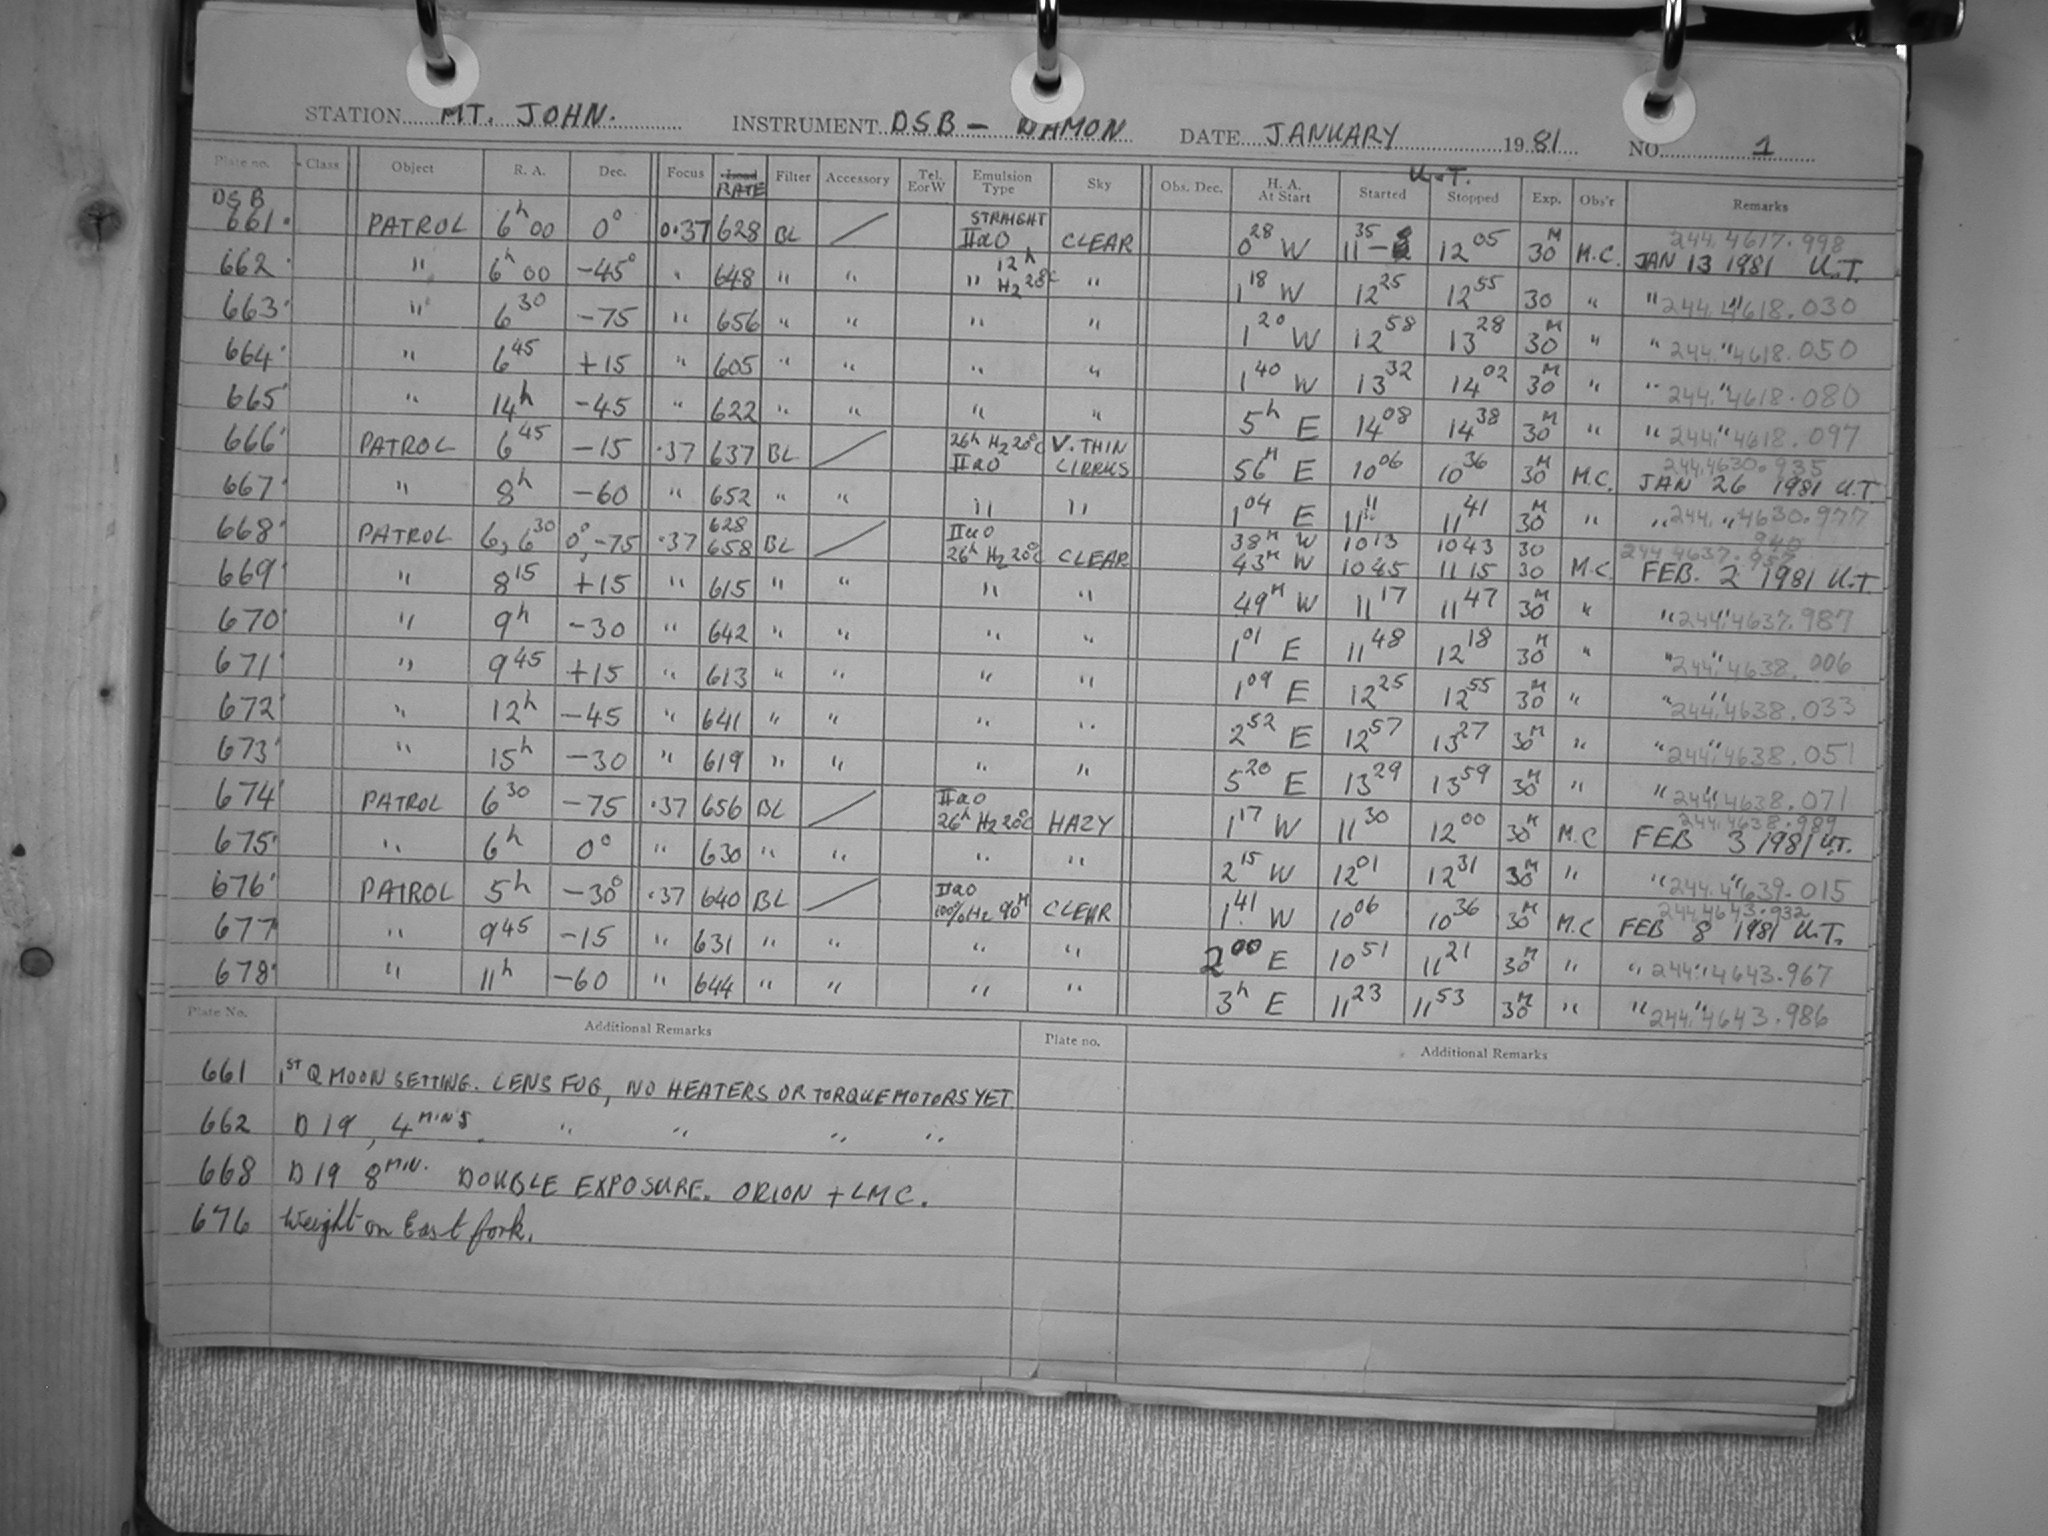 STATION MT. JOHN. INSTRUMENT DSB - DAMON DATE JANUARY 1981 NO. 1
Plate no. Class Object R. A. Dec. Focus Load RATE Filter Accessory Tel. E or W Emulsion Type Sky Obs. Dec. H. A. At Start U.T. Started Stopped Exp. Obs'r Remarks
DSB 661 PATROL 6h 00 0° 0.37 628 BL STRAIGHT IIaO CLEAR 0 28 W 11 35 12 05 30M M.C. 244.4617.998 JAN 13 1981 U.T.
662 " 6h 00 -45° " 648 " " " 12h H2 28°C " 1 18 W 12 25 12 55 30 " " 244.4618.030
663 " 6 30 -75 " 656 " " " " 1 20 W 12 58 13 28 30M " " 244.4618.050
664 " 6 45 +15 " 605 " " " " 1 40 W 13 32 14 02 30M " " 244.4618.080
665 " 14h -45 " 622 " " " " 5h E 14 08 14 38 30M " " 244.4618.097
666 PATROL 6 45 -15 .37 637 BL 26h H2 20°C IIaO V. THIN CIRRUS 56M E 10 06 10 36 30M M.C. 244.4630.935 JAN 26 1981 U.T
667 " 8h -60 " 652 " " " " 1 04 E 11 11 11 41 30M " " 244.4630.977
668 PATROL 6, 6 30 0°, -75 .37 628 658 BL IIaO 26h H2 20°C CLEAR 38M W 43M W 1013 1045 1043 1115 30 30 M.C. 244.4637.940 955 FEB. 2 1981 U.T.
669 " 8 15 +15 " 615 " " " " 49M W 11 17 11 47 30M " " 244.4637.987
670 " 9h -30 " 642 " " " " 1 01 E 11 48 12 18 30M " " 244.4638.006
671 " 9 45 +15 " 613 " " " " 1 09 E 12 25 12 55 30M " " 244.4638.033
672 " 12h -45 " 641 " " " " 2 52 E 12 57 13 27 30M " " 244.4638.051
673 " 15h -30 " 619 " " " " 5 20 E 13 29 13 59 30M " " 244.4638.071
674 PATROL 6 30 -75 .37 656 BL IIaO 26h H2 20°C HAZY 1 17 W 11 30 12 00 30M M.C 244.4638.989 FEB 3 1981 U.T.
675 " 6h 0° " 630 " " " " 2 15 W 12 01 12 31 30M " " 244.4639.015
676 PATROL 5h -30° .37 640 BL IIaO 100% H2 90M CLEAR 1 41 W 10 06 10 36 30M M.C 244.4643.932 FEB 8 1981 U.T.
677 " 9 45 -15 " 631 " " " " 2 00 E 10 51 11 21 30M " " 244.4643.967
678 " 11h -60 " 644 " " " " 3h E 11 23 11 53 30M " " 244.4643.986
Plate No. Additional Remarks Plate no. Additional Remarks
661 1ST Q MOON SETTING. LENS FOG, NO HEATERS OR TORQUE MOTORS YET
662 D19, 4 MINS. " " " "
668 D19 8 MIN. DOUBLE EXPOSURE. ORION + LMC.
676 Weight on East fork.